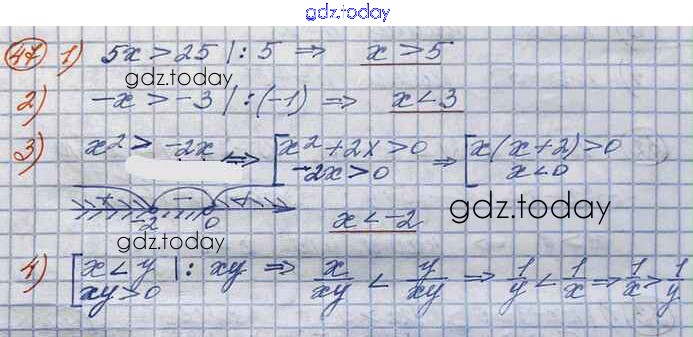 gdz.today
47 1) 5x > 25 | : 5 ⇒ x > 5
gdz.today
2) -x > -3 | : (-1) ⇒ x < 3
3) x² > -2x ⇔ [ x² + 2x > 0 ⇒ [ x(x+2) > 0
-2x > 0 x < 0
+ - +
-2 0 x < -2 gdz.today
gdz.today
4) [ x < y | : xy ⇒ x/xy < y/xy ⇒ 1/y < 1/x ⇒ 1/x > 1/y
xy > 0